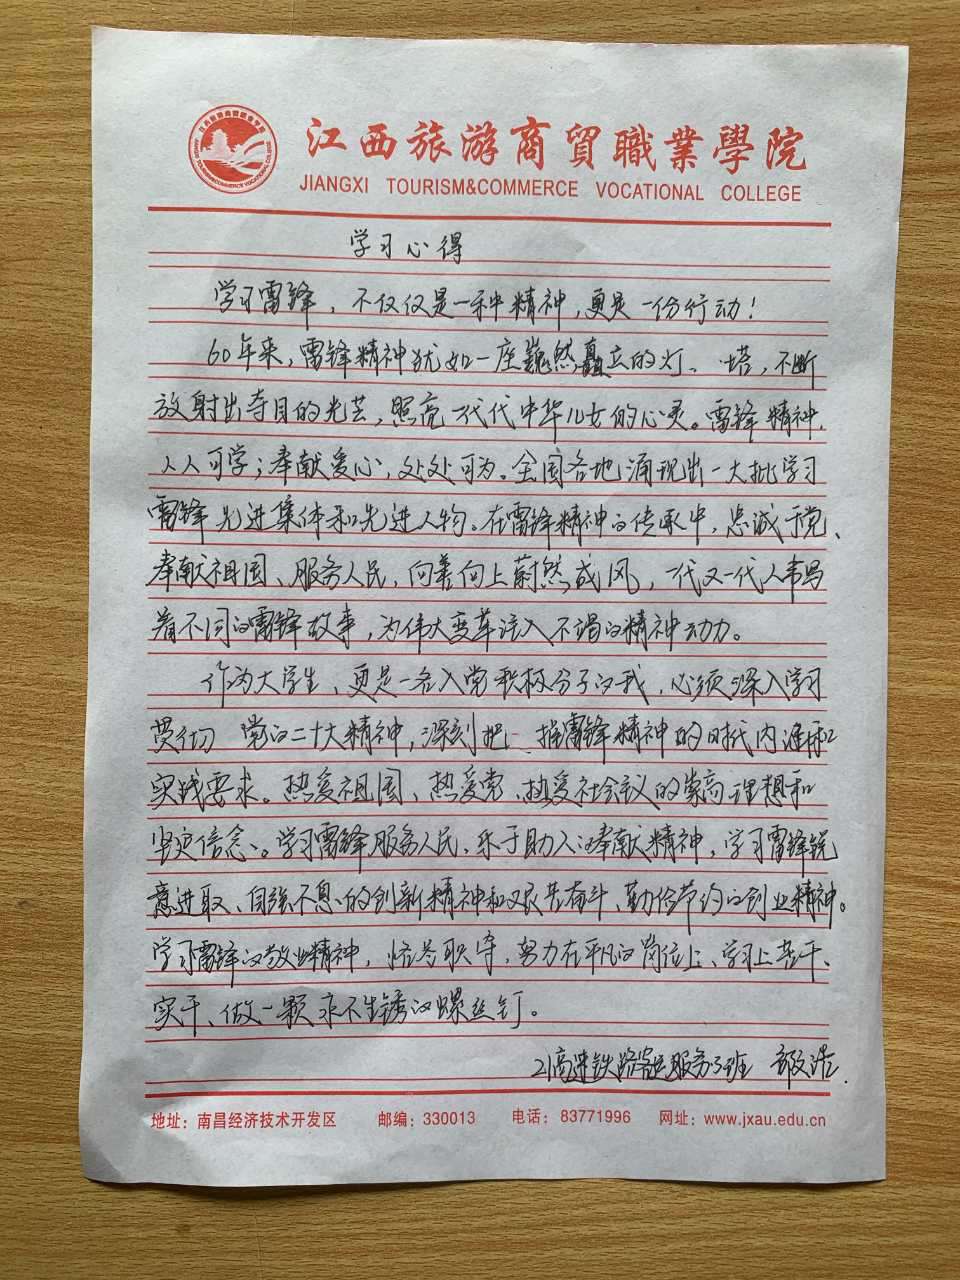 江西旅游商貿職業學院
JIANGXI TOURISM&COMMERCE VOCATIONAL COLLEGE
学习心得
学习雷锋，不仅仅是一种精神，更是一份行动！
60年来，雷锋精神犹如一座巍然矗立的灯、塔，不断
放射出夺目的光芒，照亮一代代中华儿女的心灵。雷锋精神，
人人可学；奉献爱心，处处可为。全国各地涌现出一大批学习
雷锋先进集体和先进人物。在雷锋精神的传承中，忠诚于党、
奉献祖国、服务人民，向善向上蔚然成风，一代又一代人书写
着不同的雷锋故事，为伟大变革注入不竭的精神动力。
作为大学生、更是一名入党积极分子的我，必须深入学习
贯彻 党的二十大精神，深刻把 握雷锋精神的时代内涵和
实践要求。热爱祖国、热爱党、热爱社会主义的崇高理想和
坚定信念、。学习雷锋服务人民、乐于助人的奉献精神，学习雷锋锐
意进取、自强不息的创新精神和艰苦奋斗、勤俭节约的创业精神。
学习雷锋的敬业精神，恪尽职守，努力在平凡的岗位上、学习上苦干、
实干、做一颗永不生锈的螺丝钉。
21高速铁路客运服务3班
地址：南昌经济技术开发区 邮编：330013 电话：83771996 网址：www.jxau.edu.cn